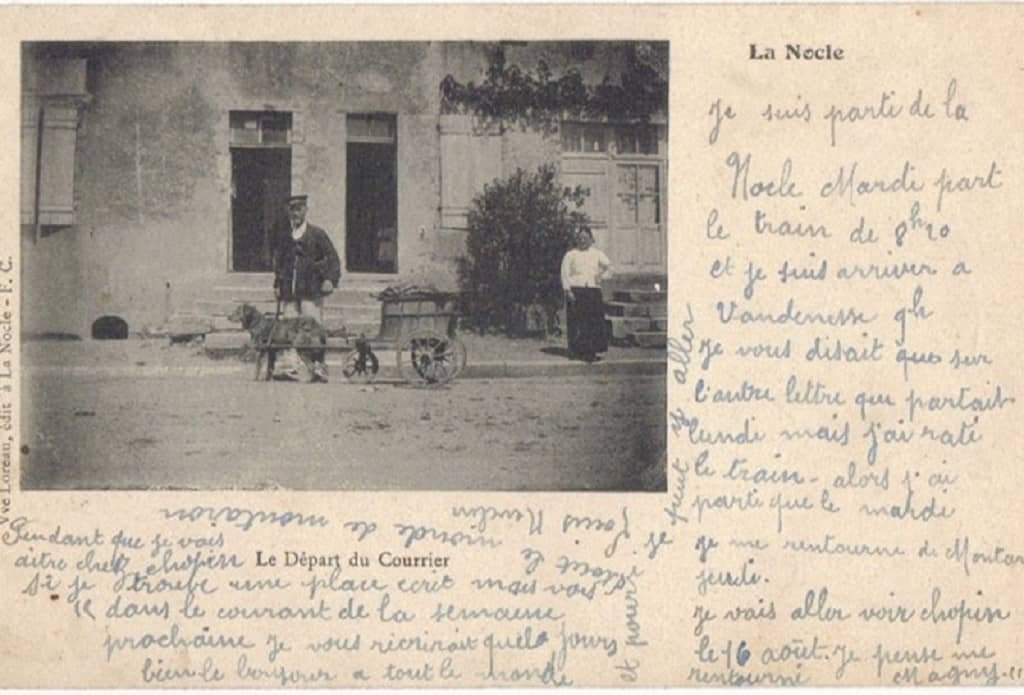 La Nocle
Je suis parti de la
Nocle Mardi part
le train de 8h20
et je suis arriver a
Vandenesse 9h
Je vous disait que sur
l'autre lettre que partait
lundi mais j'ai rati
le train - alors j'ai
parti que le mardi
je me rentourne di Montar
jeudi.
je vais aller voir chopin
le 16 août. Je pense me
rentourné Magny
Vve Loreau, édit à La Nocle - F. C.
Le Départ du Courrier
Pendant que je vais
aitre chez chopin
Si je trouve une place ecrit
dans le courant de la semaine
prochaine je vous récrirait quel jours
bien le bonjour a tout le monde
monde de
et pour
je peut y aller